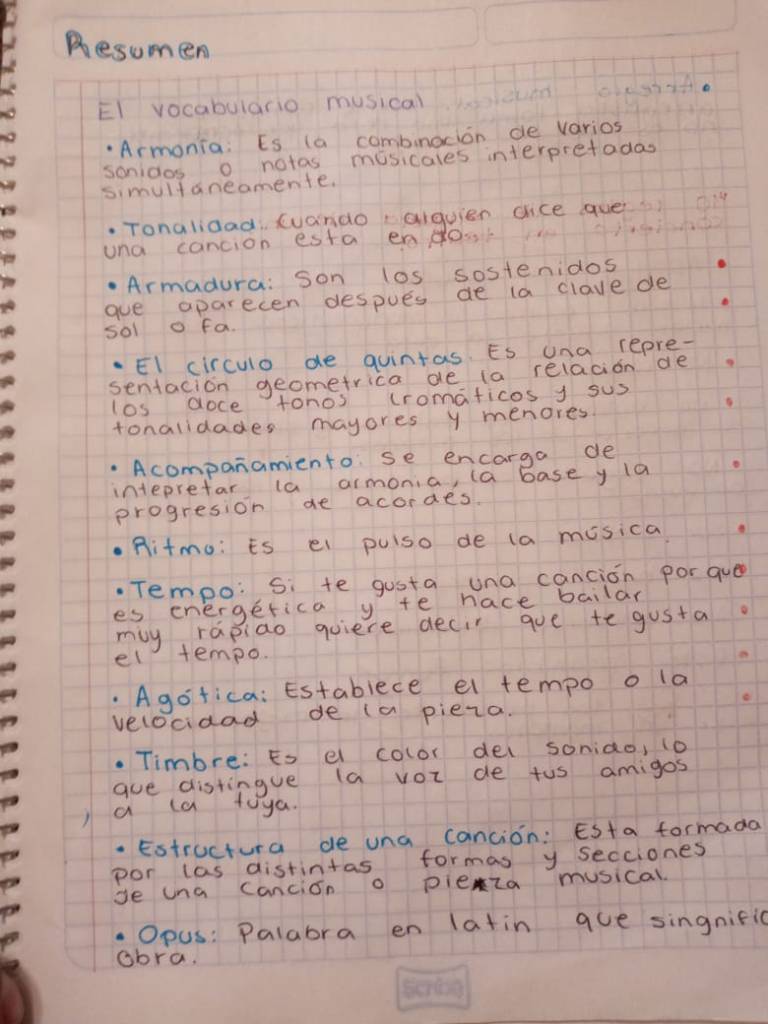 Resumen
El vocabulario musical
• Armonía: Es la combinación de varios
sonidos o notas músicales interpretadas
simultáneamente.
• Tonalidad: Cuando alguien dice que
una canción esta en do
• Armadura: Son los sostenidos
que aparecen después de la clave de
sol o fa.
• El circulo de quintas Es una repre-
sentación geometrica de la relación de
los doce tonos cromáticos y sus
tonalidades mayores y menores.
• Acompañamiento: Se encarga de
intepretar la armonia, la base y la
progresión de acordes.
• Ritmo: Es el pulso de la música.
• Tempo: Si te gusta una canción porque
es energética y te hace bailar
muy rápido quiere decir que te gusta
el tempo.
• Agótica: Establece el tempo o la
velocidad de la pieza.
• Timbre: Es el color del sonido, lo
que distingue la voz de tus amigos
a la tuya.
• Estructura de una canción: Esta formada
por las distintas formas y secciones
de una canción o pieza musical.
• Opus: Palabra en latin que singnific
obra.
Scribe